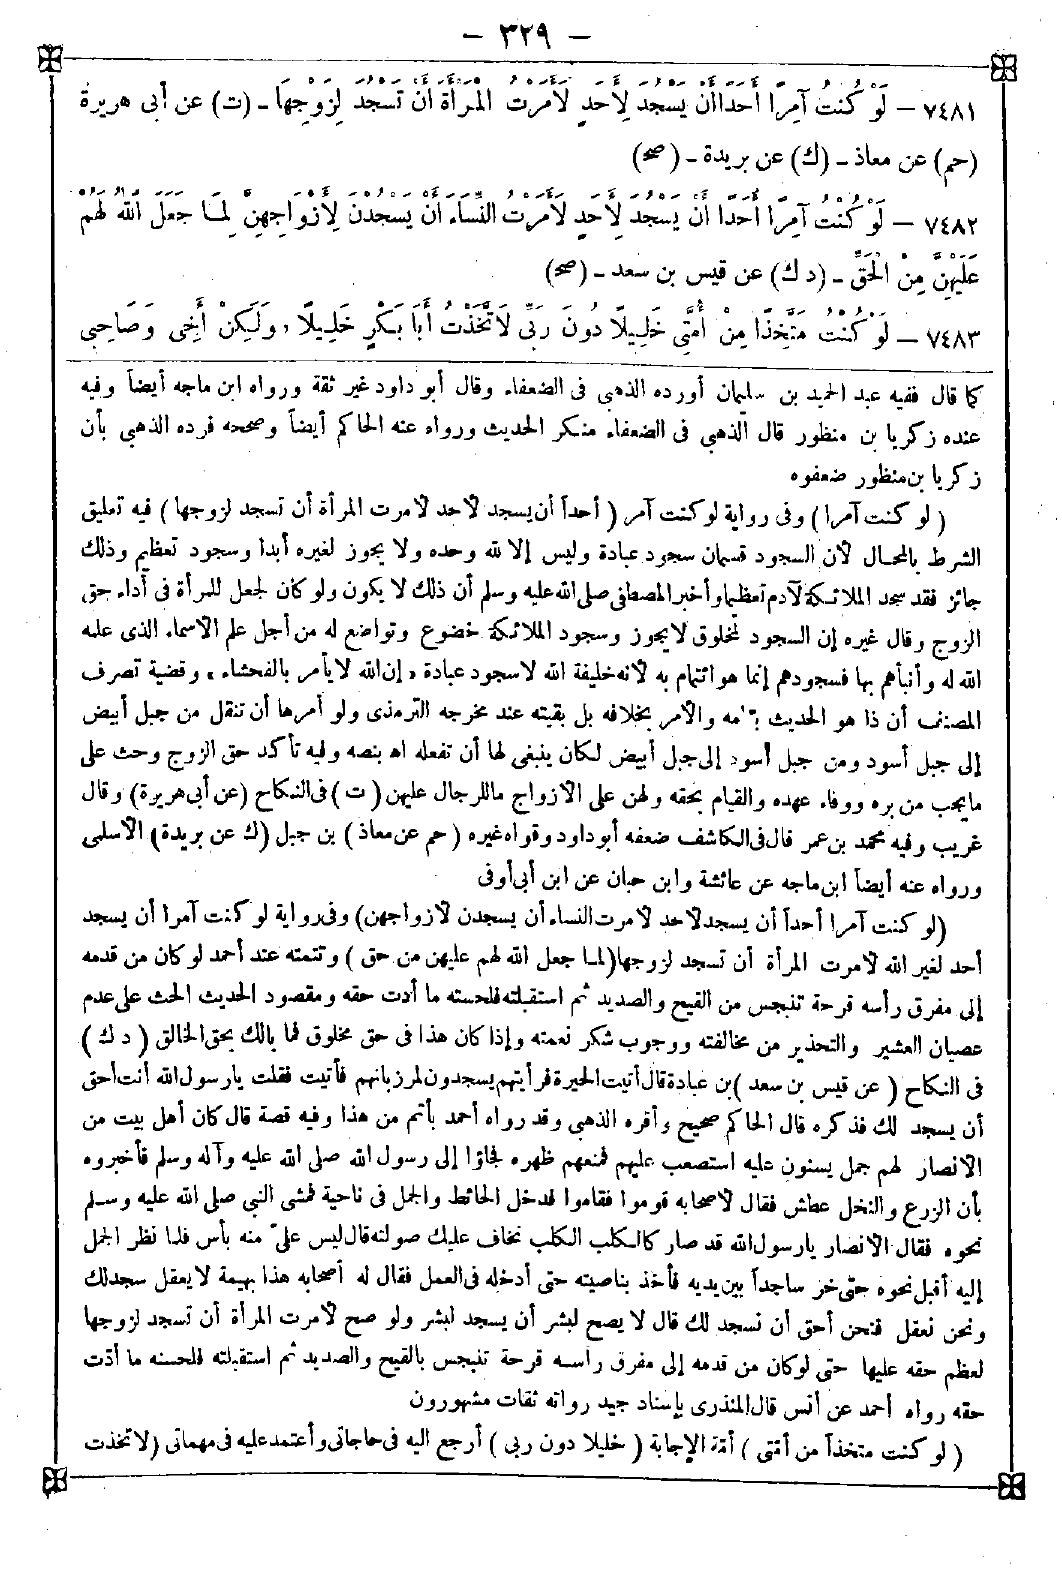 - ٣٢٩ -
٧٤٨١ - لَوْ كُنْتُ آمِرًا أَحَدًا أَنْ يَسْجُدَ لِأَحَدٍ لَأَمَرْتُ الْمَرْأَةَ أَنْ تَسْجُدَ لِزَوْجِهَا - (ت) عن أبى هريرة
(حم) عن معاذ - (ك) عن بريدة - (صح)
٧٤٨٢ - لَوْ كُنْتُ آمِرًا أَحَدًا أَنْ يَسْجُدَ لِأَحَدٍ لَأَمَرْتُ النِّسَاءَ أَنْ يَسْجُدْنَ لِأَزْوَاجِهِنَّ لِمَا جَعَلَ اللّٰهُ لَهُمْ
عَلَيْهِنَّ مِنْ الْحَقِّ - (د ك) عن قيس بن سعد - (صح)
٧٤٨٣ - لَوْ كُنْتُ مُتَّخِذًا مِنْ أُمَّتِى خَلِيلًا دُونَ رَبِّى لَاتَّخَذْتُ أَبَا بَكْرٍ خَلِيلًا، وَلَكِنْ أَخِى وَصَاحِبِى
كما قال ففيه عبد الحميد بن سليمان أورده الذهبى فى الضعفاء وقال أبو داود غير ثقة ورواه ابن ماجه أيضاً وفيه
عنده زكريا بن منظور قال الذهبى فى الضعفاء منكر الحديث ورواه عنه الحاكم أيضاً وصححه فرده الذهبى بأن
زكريا بن منظور ضعفوه
(لو كنت آمرا) وفى رواية لو كنت آمر (أحداً أن يسجد لأحد لأمرت المرأة أن تسجد لزوجها) فيه تعليق
الشرط بالمحال لأن السجود قسمان سجود عبادة وليس إلا لله وحده ولا يجوز لغيره أبدا وسجود تعظيم وذلك
جائز فقد سجد الملائكة لآدم تعظيما وأخبر المصطفى صلى الله عليه وسلم أن ذلك لا يكون ولو كان لجعل للمرأة فى أداء حق
الزوج وقال غيره إن السجود لمخلوق لا يجوز وسجود الملائكة خضوع وتواضع له من أجل علم الأسماء الذى علمه
الله له وأنبأهم بها فسجودهم إنما هو ائتمام به لأنه خليفة الله لا سجود عبادة، إن الله لا يأمر بالفحشاء، وقضية تصرف
المصنف أن ذا هو الحديث بتمامه والأمر بخلافه بل بقيته عند مخرجه الترمذى ولو أمرها أن تنقل من جبل أبيض
إلى جبل أسود ومن جبل أسود إلى جبل أبيض لكان ينبغى لها أن تفعله اه بنصه وفيه تأكد حق الزوج وحث على
ما يجب من بره ووفاء عهده والقيام بحقه ولهن على الأزواج ما للرجال عليهن (ت) فى النكاح (عن أبى هريرة) وقال
غريب وفيه محمد بن عمر قال فى الكاشف ضعفه أبو داود وقواه غيره (حم عن معاذ) بن جبل (ك عن بريدة) الأسلمى
ورواه عنه أيضاً ابن ماجه عن عائشة وابن حبان عن ابن أبى أوفى
(لو كنت آمرا أحداً أن يسجد لأحد لأمرت النساء أن يسجدن لأزواجهن) وفى رواية لو كنت آمرا أن يسجد
أحد لغير الله لأمرت المرأة أن تسجد لزوجها (لما جعل الله لهم عليهن من حق) وتتمته عند أحمد لو كان من قدمه
إلى مفرق رأسه قرحة تنبجس من القيح والصديد ثم استقبلته فلحسته ما أدت حقه ومقصود الحديث الحث على عدم
عصيان العشير والتحذير من مخالفته ووجوب شكر نعمته وإذا كان هذا فى حق مخلوق فما بالك بحق الخالق (د ك)
فى النكاح (عن قيس بن سعد) بن عبادة قال أتيت الحيرة فرأيتهم يسجدون لمرزبانهم فأتيت فقلت يا رسول الله أنت أحق
أن يسجد لك فذكره قال الحاكم صحيح وأقره الذهبى وقد رواه أحمد بأتم من هذا وفيه قصة قال كان أهل بيت من
الأنصار لهم جمل يسنون عليه استصعب عليهم فمنعهم ظهره فجاؤا إلى رسول الله صلى الله عليه وآله وسلم فأخبروه
بأن الزرع والنخل عطاش فقال لأصحابه قوموا فقاموا فدخل الحائط والجمل فى ناحية فمشى النبي صلى الله عليه وسلم
نحوه فقال الأنصار يا رسول الله قد صار كالكلب الكلب نخاف عليك صولته قال ليس علىّ منه بأس فلما نظر الجمل
إليه أقبل نحوه حتى خر ساجداً بين يديه فأخذ بناصيته حتى أدخله فى العمل فقال له أصحابه هذا بهيمة لا يعقل سجد لك
ونحن نعقل فنحن أحق أن نسجد لك قال لا يصح لبشر أن يسجد لبشر ولو صح لأمرت المرأة أن تسجد لزوجها
لعظم حقه عليها حتى لو كان من قدمه إلى مفرق رأسه قرحة تنبجس بالقيح والصديد ثم استقبلته فلحسته ما أدت
حقه رواه أحمد عن أنس قال المنذرى بإسناد جيد رواته ثقات مشهورون
(لو كنت متخذاً من أمتى) أمة الإجابة (خليلا دون ربى) أرجع اليه فى حاجاتى وأعتمد عليه فى مهماتى (لاتخذت